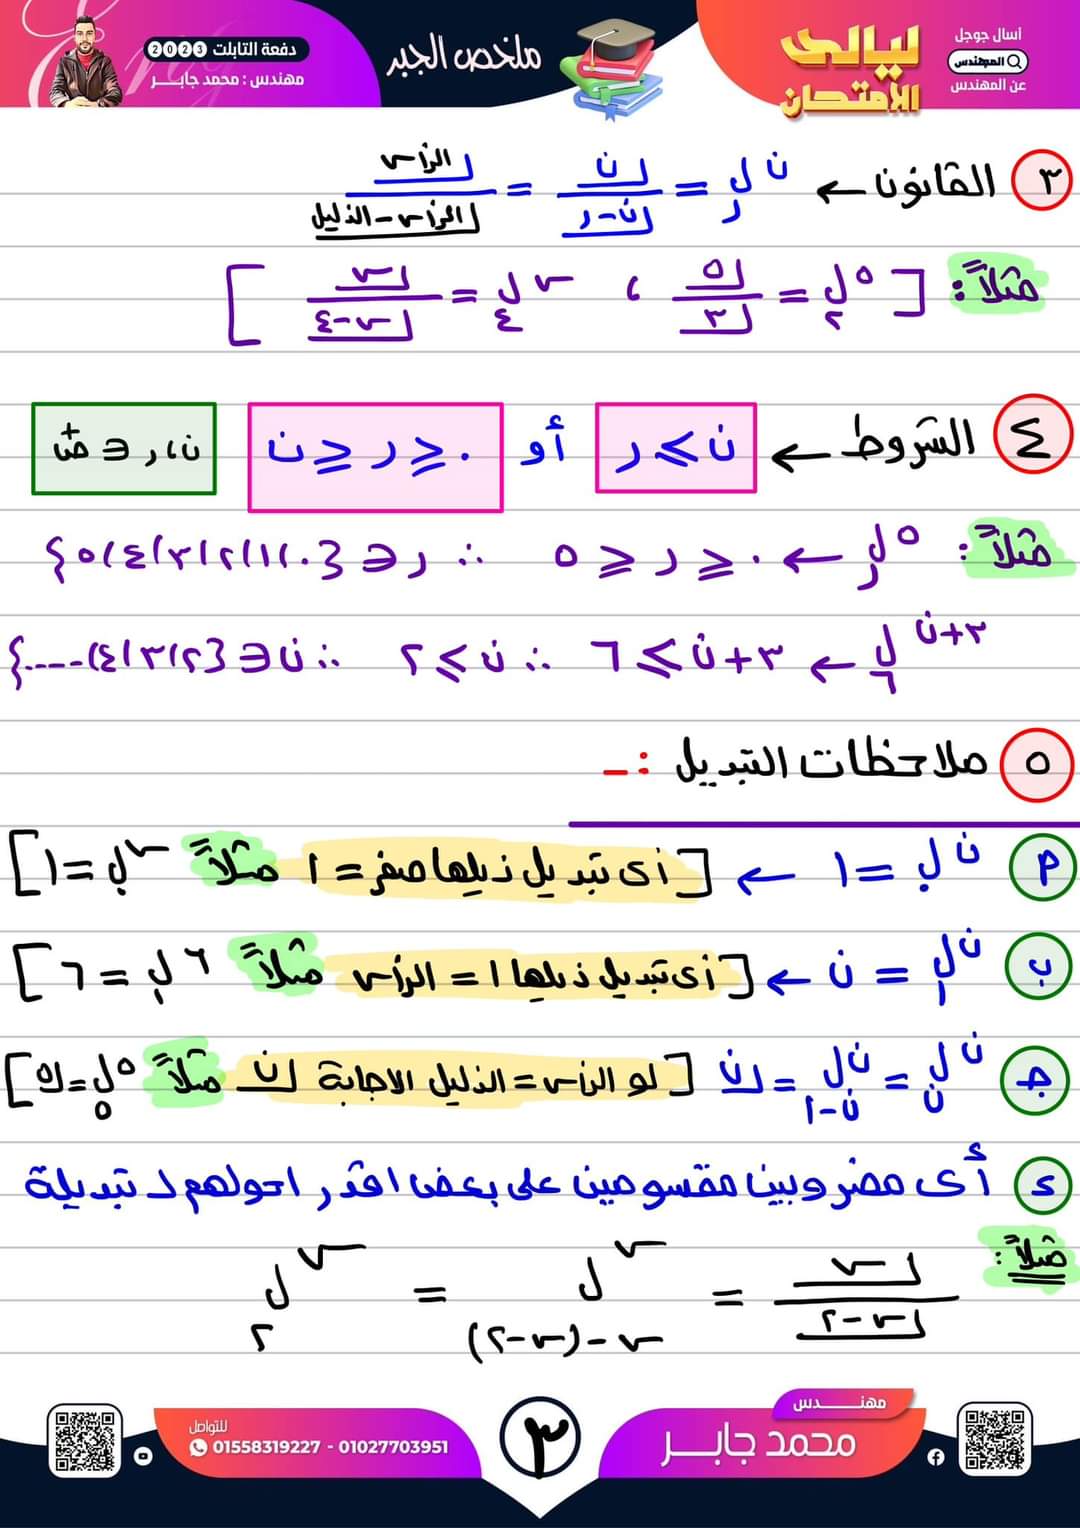 اسأل جوجل
المهندس
عن المهندس
ليالى الامتحان
ملخص الجبر
دفعة التابلت 2023
مهندس : محمد جابر
٣ القانون ← ⁿلر = ⌊ن / ⌊ن-ر = ⌊الرأس / ⌊الرأس - الذليل
مثلاً : [ ⁵ل٢ = ⌊٥ / ⌊٣ ، سل٤ = ⌊س / ⌊س-٤ ]
٤ الشروط ← ن ⩾ ر أو ٠ ⩽ ر ⩽ ن ن ، ر ∈ ص+
مثلاً : ٥لر ← ٠ ⩽ ر ⩽ ٥ ∴ ر ∈ {٠،١،٢،٣،٤،٥}
ن+٣ل٦ ← ن+٣ ⩾ ٦ ∴ ن ⩾ ٢ ∴ ن ∈ {٢،٣،٤،....}
٥ ملاحظات التبديل :-
م نل٠ = ١ ← [ أى تبديل ذيلها صفر = ١ مثلاً سل٠ = ١ ]
ب نل١ = ن ← [ أى تبديل ذيلها ١ = الرأس مثلاً ٦ل١ = ٦ ]
جـ نلن = نلن-١ = ⌊ن [ لو الرأس = الذليل الاجابة ⌊ن مثلاً ٥ل٥ = ⌊٥ ]
ء أى مضروبين مقسومين على بعض اقدر احولهم لـ تبديلة
مثلاً :
⌊س / ⌊س-٢ = سلس-(س-٢) = سل٢
مهندس
محمد جابر
٣
للتواصل
01558319227 - 01027703951